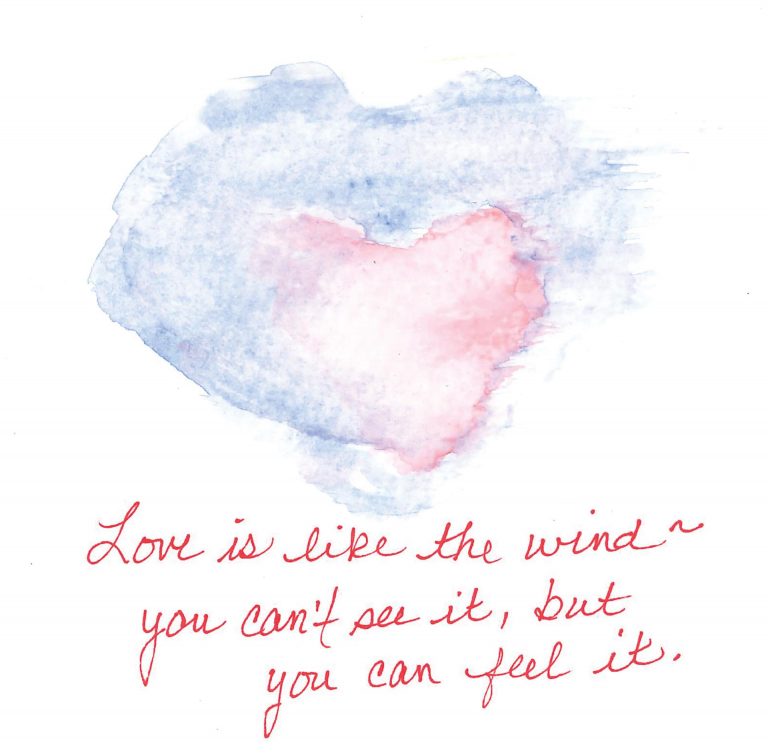 Love is like the wind ~
you can't see it, but
you can feel it.